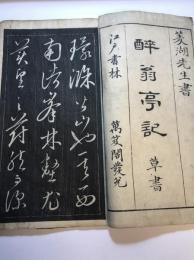 菱湖先生書
醉翁亭記 草書
江戸書林
萬笈閣發兌
環滁皆山也其西
南諸峯林壑尤
美望之蔚然而深